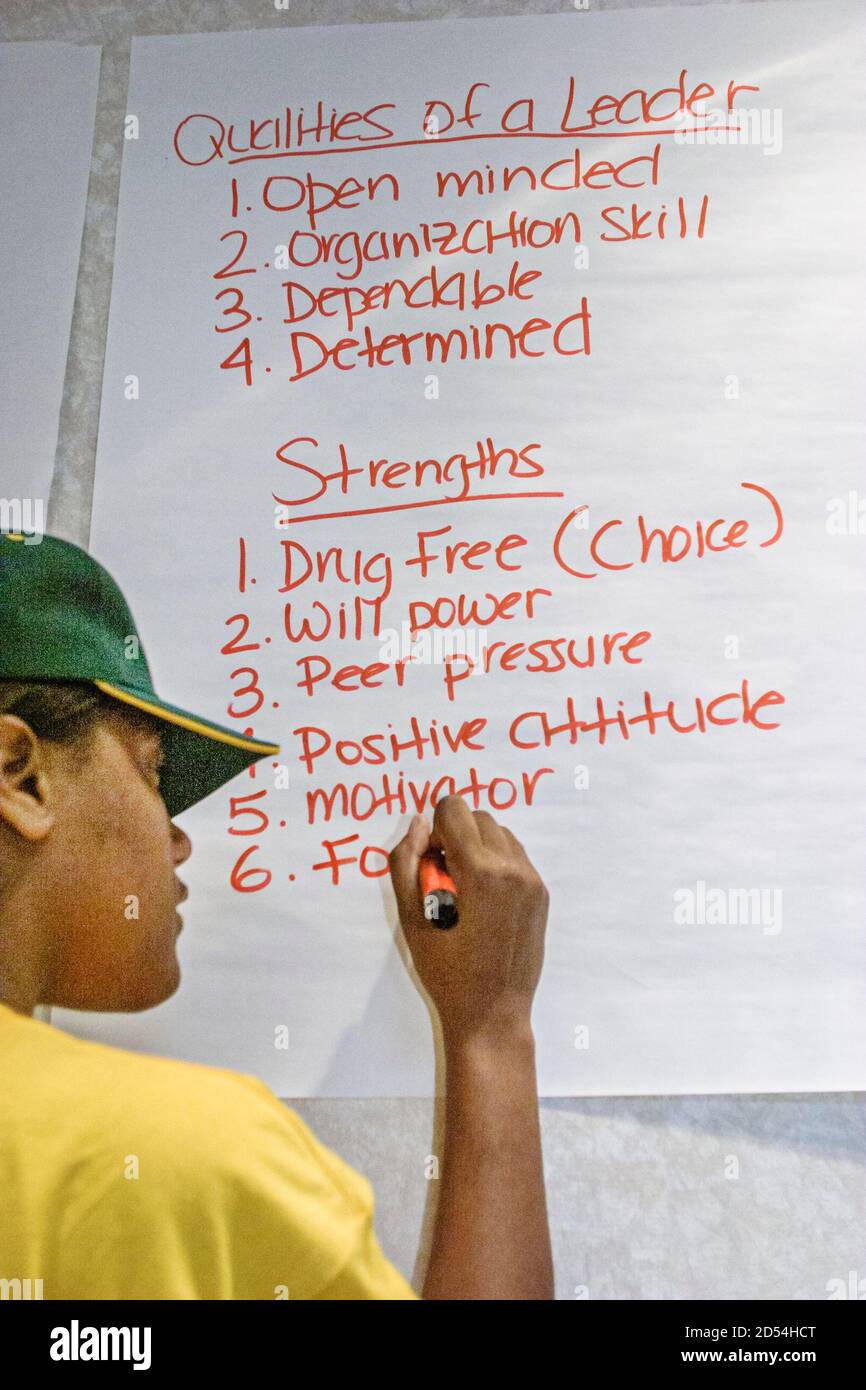 Qualities of a Leader
1. Open minded
2. Organization Skill
3. Dependable
4. Determined
Strengths
1. Drug Free (Choice)
2. Will power
3. Peer pressure
4. Positive attitude
5. motivator
6. Fo
alamy
Image ID: 2D54HCT
www.alamy.com